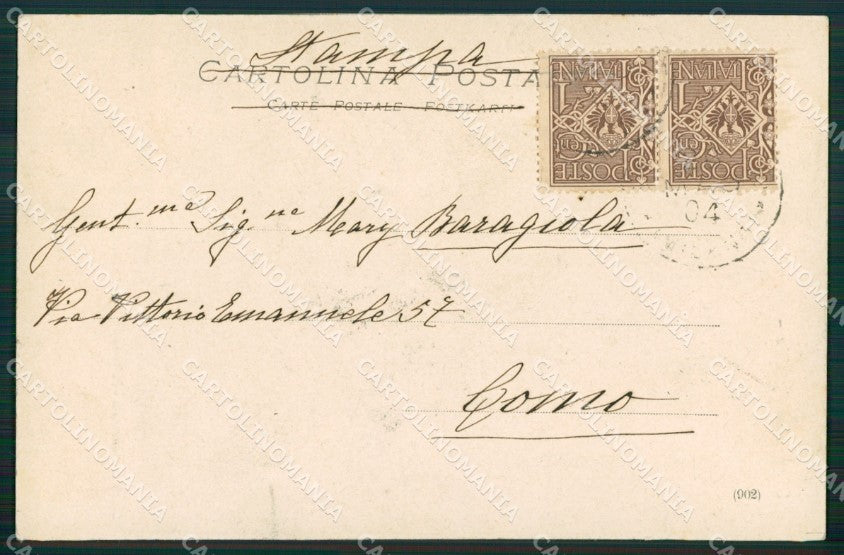 Stampa
CARTOLINA POSTA
CARTE POSTALE - POSTKARTE
POSTE ITALIANE
POSTE ITALIANE
04
Gent.ma Sig.na Mary Baragiola
Via Vittorio Emanuele 57
Como
(902)
CARTOLINOMANIA